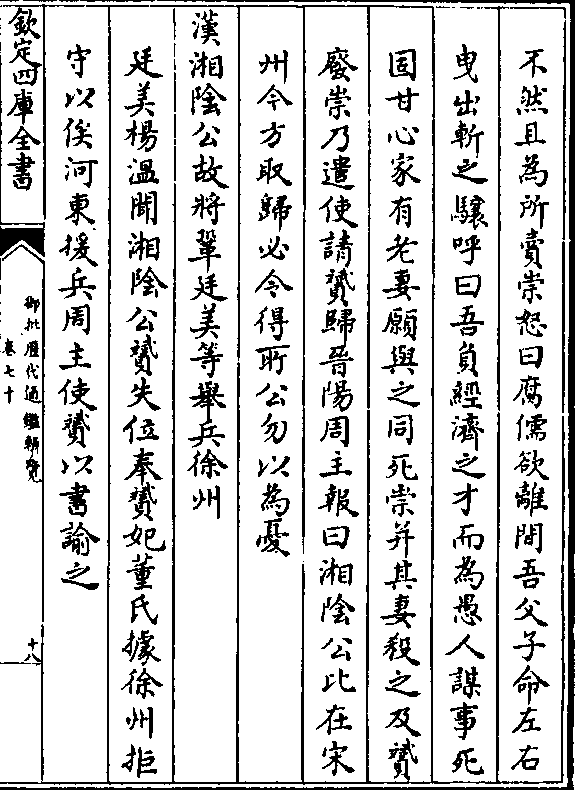 不然且為所賣崇怒曰腐儒欲離間吾父子命左右
曳出斬之驤呼曰吾負經濟之才而為愚人謀事死
固甘心家有老妻願與之同死崇并其妻殺之及贇
廢崇乃遣使請贇歸晉陽周主報曰湘陰公比在宋
州今方取歸必令得所公勿以為憂
漢湘陰公故將鞏廷美等舉兵徐州
廷美楊溫聞湘陰公贇失位奉贇妃董氏據徐州拒
守以俟河東援兵周主使贇以書諭之
欽定四庫全書
御批歷代通鑑輯覽
卷七十
十八